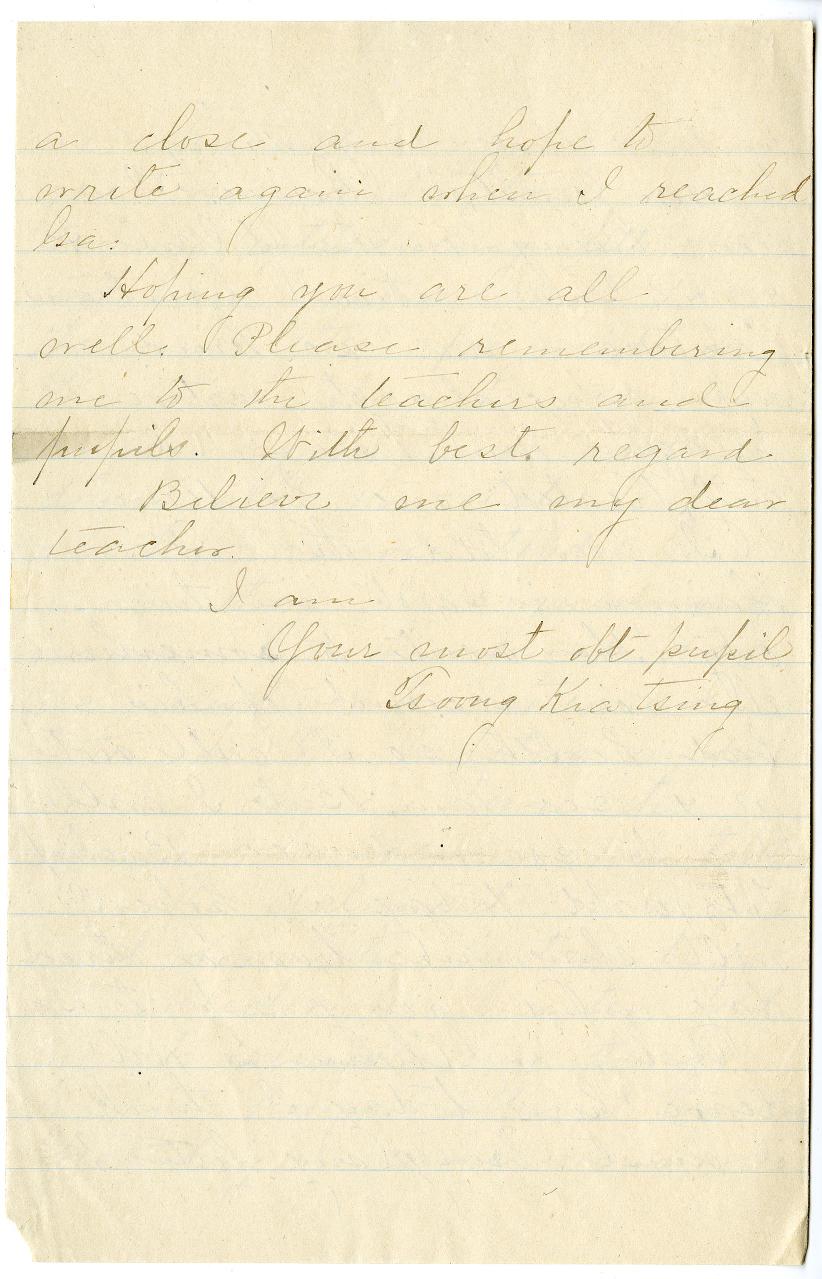 a close and hope to
write again when I reached

Hoping you are all
well. Please remembering
me to the teachers and
pupils. With best regard
Believe me my dear
teacher.
I am
Your most obt pupil
Tsoong Kia tsing